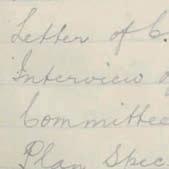 Letter of C.
Interview of
Committee
Plan Spec